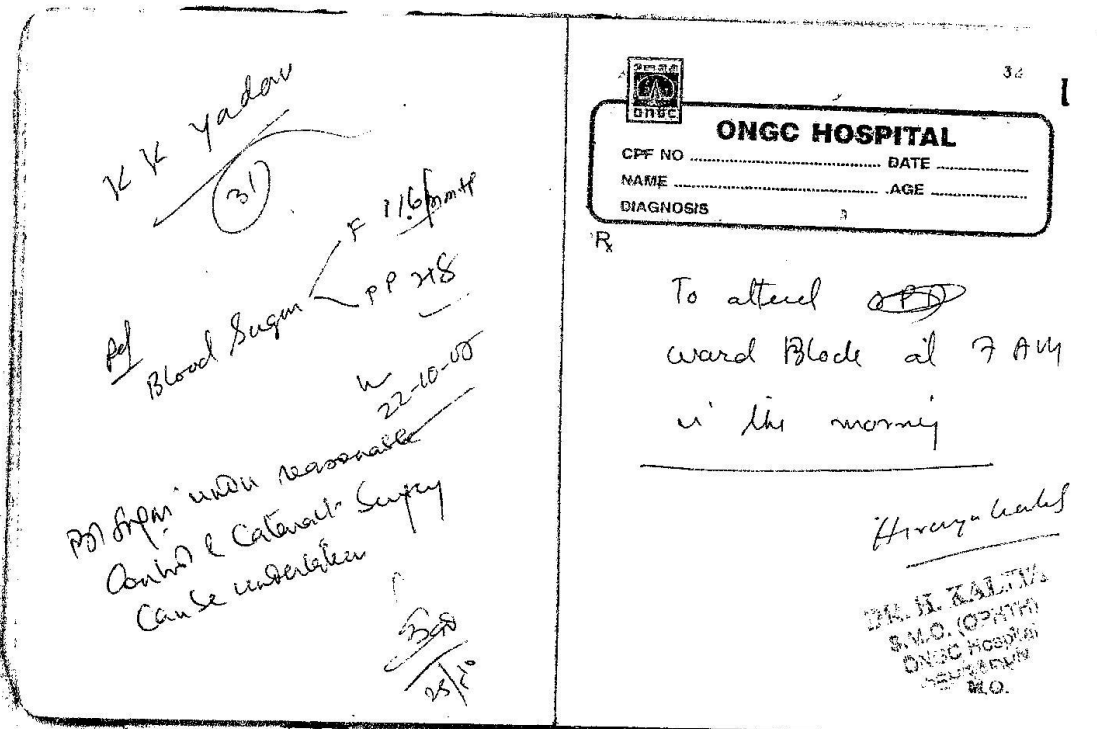 K K Yadav
31
Blood Sugar
F 116
PP
22-10-
Bl Sugar under reasonable
Control & Cataract Surgery
Can be undertaken
25/10
32
ONGC
ONGC HOSPITAL
CPF NO ........................ DATE ................
NAME ........................ AGE ................
DIAGNOSIS
Rx
To attend OPD
ward Block at 7 AM
in the morning
DR. H. KALIA
S.M.O. (OPHTH)
ONGC Hospital
M.O.